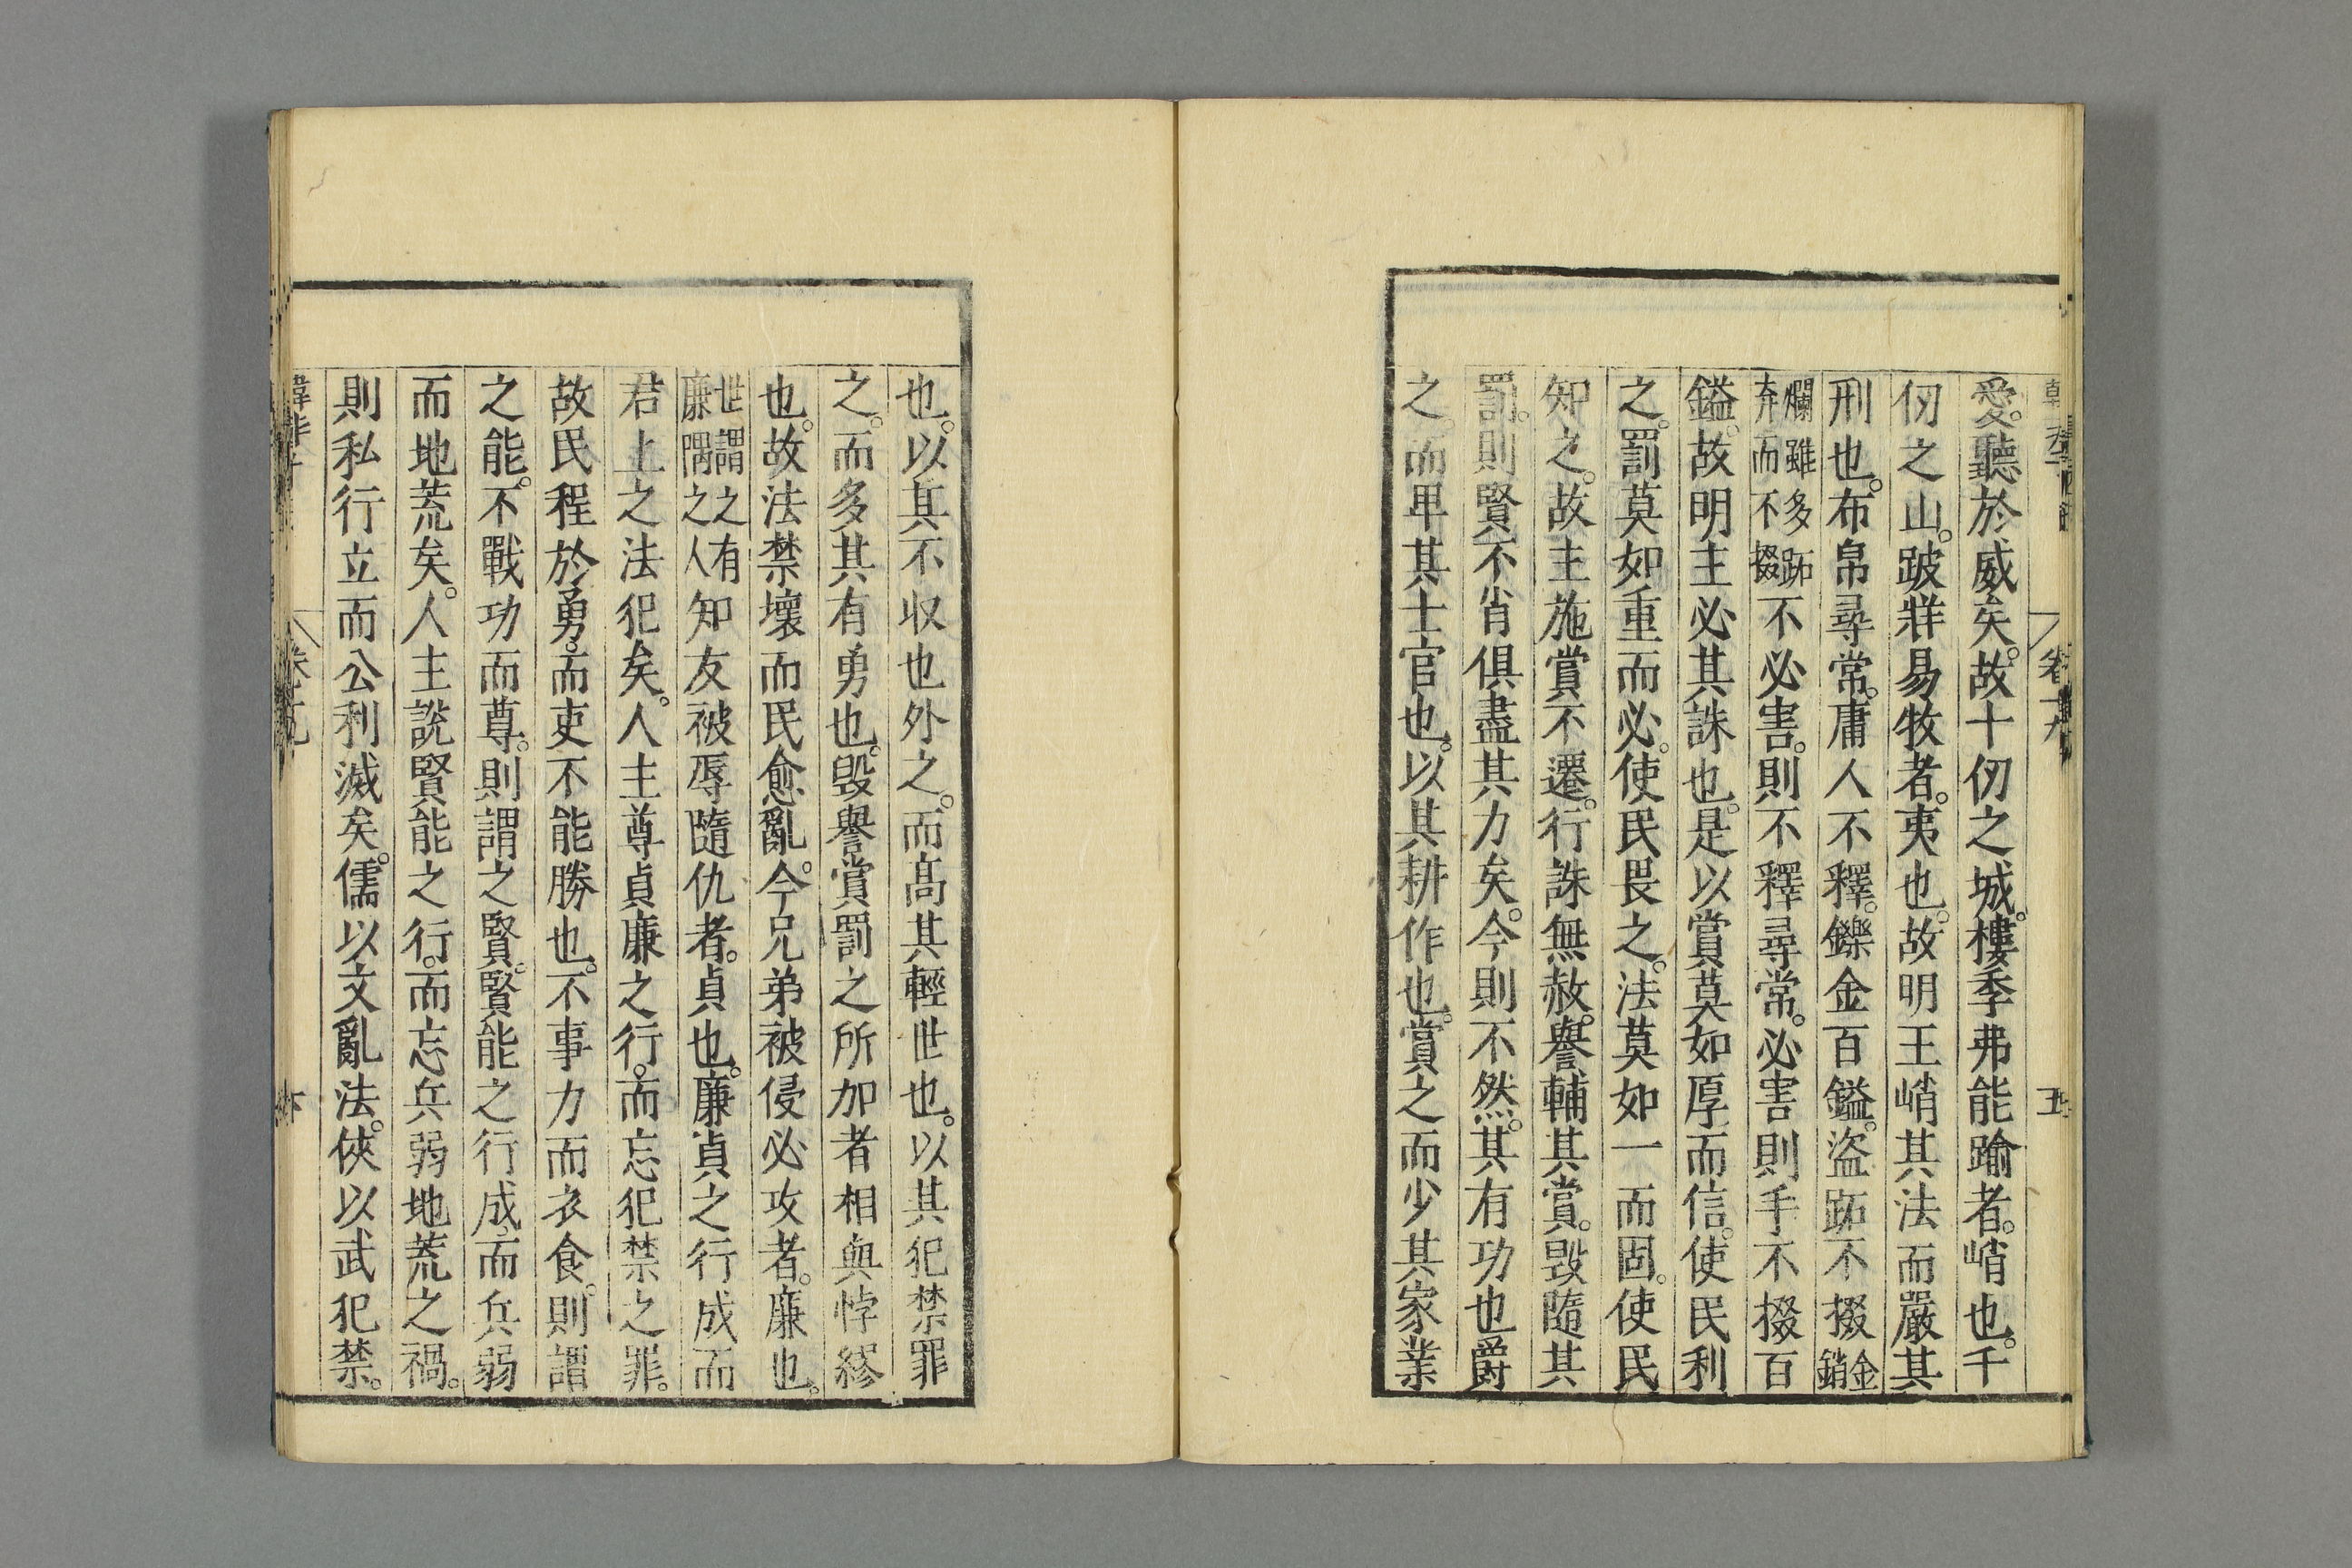 愛。聽於威矣。故十仞之城。樓季弗能踰者。峭也。千
仞之山。跛牂易牧者。夷也。故明王峭其法而嚴其
刑也。布帛尋常。庸人不釋。鑠金百鎰。盗跖不掇金銷
爛雖多跖弃而不掇不必害。則不釋尋常。必害則手不掇百
鎰。故明主必其誅也。是以賞莫如厚而信。使民利
之。罰莫如重而必。使民畏之。法莫如一而固。使民
知之。故主施賞不遷。行誅無赦。譽輔其賞。毀隨其
罰。則賢不肖俱盡其力矣。今則不然。其有功也爵
之。而卑其士官也。以其耕作也。賞之而少其家業
也。以其不收也外之。而髙其輕世也。以其犯禁罪
之。而多其有勇也。毀譽賞罰之所加者相與悖繆
也。故法禁壞而民愈亂。今兄弟被侵必攻者。廉也。
世謂之有廉隅之人知友被辱隨仇者。貞也。廉貞之行成而
君上之法犯矣。人主尊貞廉之行。而忘犯禁之罪。
故民程於勇。而吏不能勝也。不事力而衣食。則謂
之能。不戰功而尊。則謂之賢。賢能之行成。而兵弱
而地荒矣。人主說賢能之行。而忘兵弱地荒之禍。
則私行立而公利滅矣。儒以文亂法。俠以武犯禁。